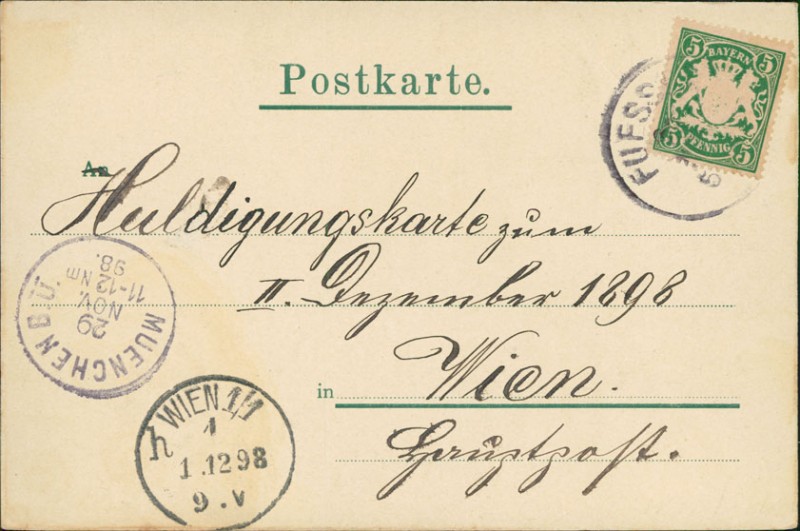 Postkarte.
5 5
BAYERN
5 PFENNIG 5
FUES
An
Huldigungskarte zum
II. Dezember 1898
in Wien.
Hauptpost.
MUENCHEN B.Ü.
29
NOV.
11-12 Nm
98.
WIEN 1/1
h 1
1.12 98
9.V